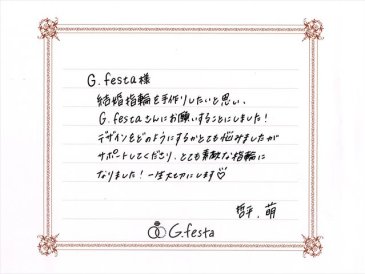 G.festa 様
結婚指輪を手作りしたいと思い、
G.festaさんにお願いすることにしました!
デザインをどのようにするかとても悩みましたが
サポートしてくださり、とても素敵な指輪に
なりました!一生大切にします♡
哲平、萌
G.festa